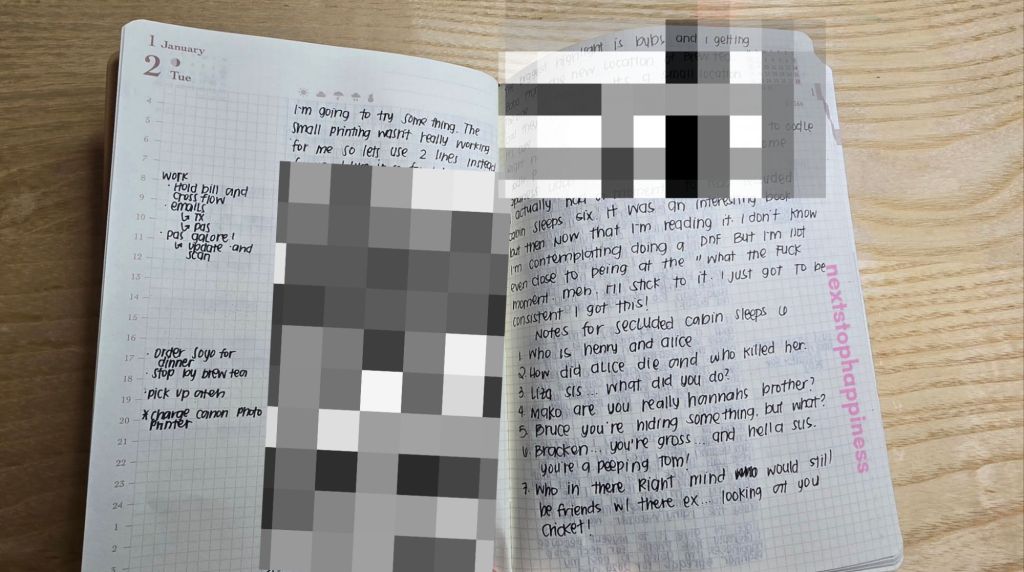 1 January
2 Tue
4
5
6
7
8
9
10
11
12
13
14
15
16
17
18
19
20
21
22
23
24
1
2
3
work
· Hold bill and
cross flow
· emails
↳ rx
↳ pas
· pas galore!
↳ update and
scan
· order soyo for
dinner
· stop by brew tea
· pick up
* charge canon photo
printer
I'm going to try something. The
small printing wasn't really working
for me so lets use 2 lines instead
is bybs and i getting
new location
small location
to oodle
me
actually, had
cabin sleeps six. it was an interesting book
but then now that I'm reading it I don't know
I'm contemplating doing a DNF But I'm not
even close to being at the "what the fuck
moment. meh. I'll stick to it. I just got to be
consistent I got this!
Notes for secluded cabin sleeps 6
1. Who is henry and alice
2. How did alice die and who killed her.
3. Liza sis... what did you do?
4. Mako are you really hannahs brother?
5. Bruce you're hiding something, but what?
6. Bracken... you're gross... and hella sus.
you're a peeping Tom!
7. Who in there Right mind would still
be friends w/ there ex... looking at you
Cricket!
nextstophappiness